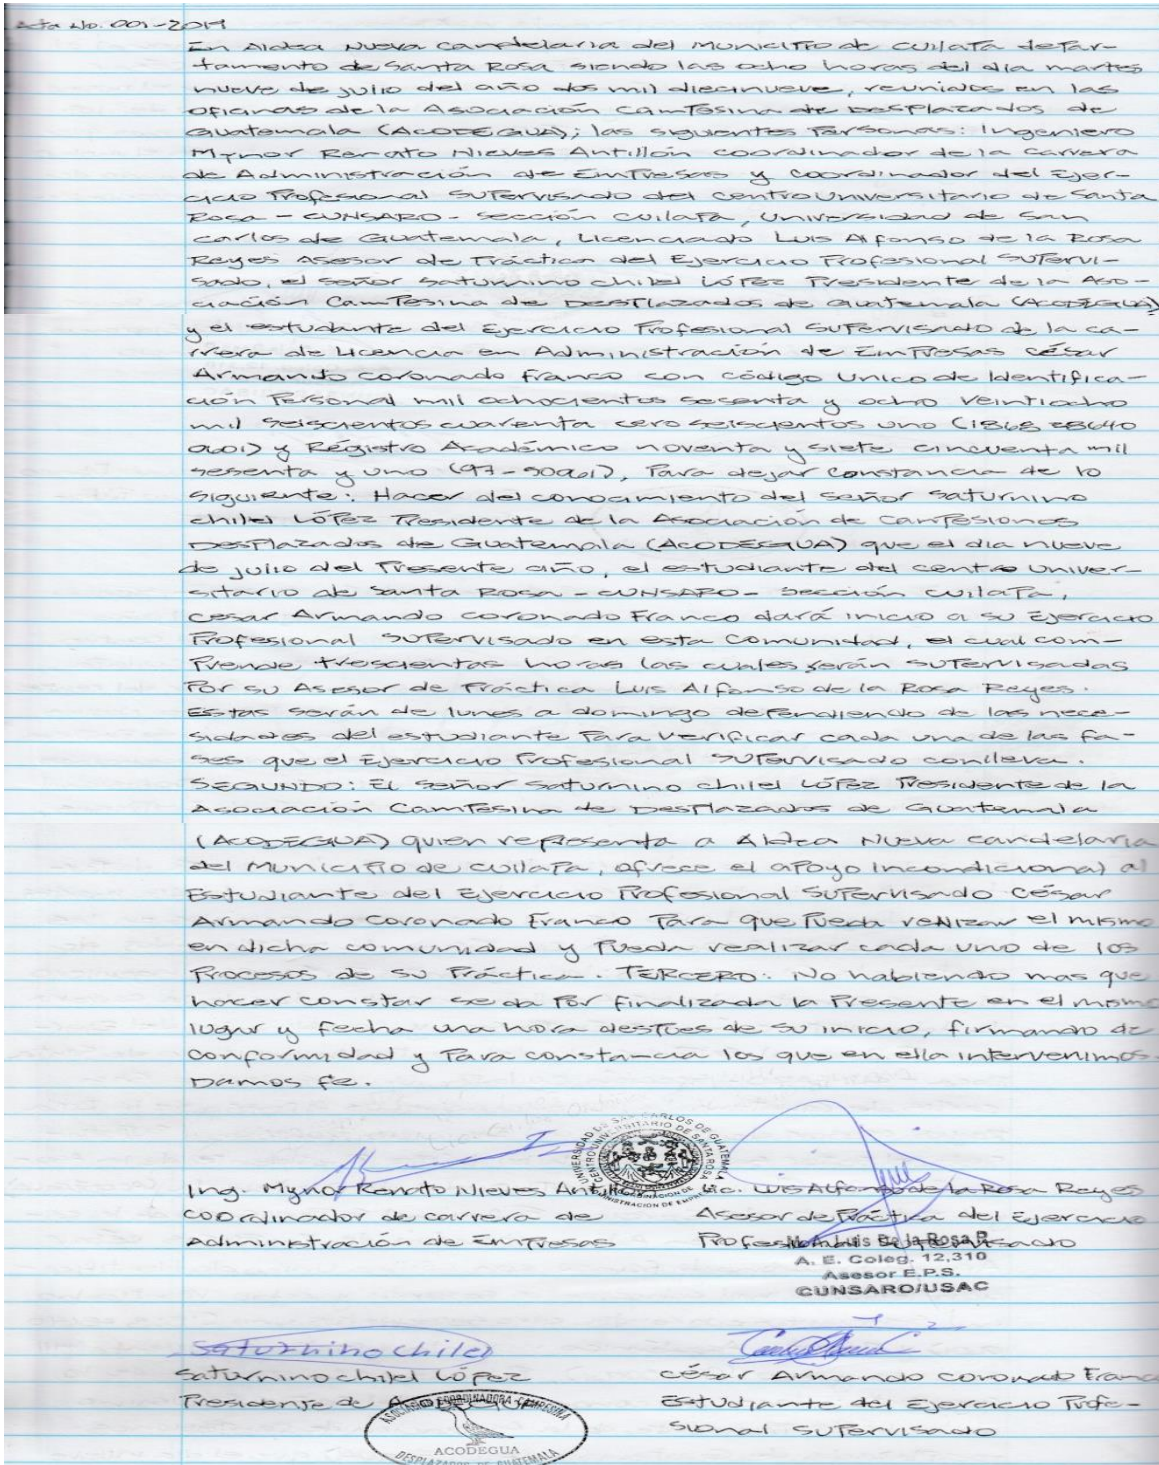 Acta No. 001-2019
En Aldea Nueva Candelaria del Municipio de Cuilapa depar-
tamento de Santa Rosa siendo las ocho horas del dia martes
nueve de julio del año dos mil diecinueve, reunidos en las
oficinas de la Asociación Campesina de Desplazados de
Guatemala (ACODEGUA); las siguientes Personas: Ingeniero
Mynor Renato Nieves Antillón coordinador de la carrera
de Administración de Empresas y coordinador del Ejer-
cicio Profesional Supervisado del Centro Universitario de Santa
Rosa - CUNSARO - sección Cuilapa, Universidad de San
Carlos de Guatemala, Licenciado Luis Alfonso de la Rosa
Reyes Asesor de Práctica del Ejercicio Profesional Supervi-
sado, el señor Saturnino Chilel López Presidente de la Aso-
ciación Campesina de Desplazados de Guatemala (ACODEGUA)
y el estudiante del Ejercicio Profesional Supervisado de la ca-
rrera de Licencia en Administración de Empresas César
Armando Coronado Franco con código Unico de Identifica-
ción Personal mil ochocientos sesenta y ocho veintiocho
mil seiscientos cuarenta cero seiscientos uno (1868 28640
0601) y Régistro Académico noventa y siete cincuenta mil
sesenta y uno (97-50061), Para dejar constancia de lo
siguiente: Hacer del conocimiento del señor Saturnino
Chilel López Presidente de la Asociación de Campesionos
Desplazados de Guatemala (ACODEGUA) que el dia nueve
de julio del Presente año, el estudiante del centro Univer-
sitario de Santa Rosa - CUNSARO - Sección Cuilapa,
Cesar Armando Coronado Franco dará inicio a su Ejercicio
Profesional Supervisado en esta Comunidad, el cual com-
Prende trescientas horas las cuales serán supervisadas
Por su Asesor de Práctica Luis Alfonso de la Rosa Reyes.
Estas serán de lunes a domingo dependiendo de las nece-
sidades del estudiante Para verificar cada una de las fa-
ses que el Ejercicio Profesional Supervisado conlleva.
SEGUNDO: El señor Saturnino Chilel López Presidente de la
Asociación Campesina de Desplazados de Guatemala
(ACODEGUA) quien representa a Aldea Nueva Candelaria
del Municipio de Cuilapa, ofrece el apoyo Incondicional al
Estudiante del Ejercicio Profesional Supervisado César
Armando Coronado Franco Para que Pueda realizar el mismo
en dicha comunidad y Pueda realizar cada uno de los
Procesos de su Práctica. TERCERO: No habiendo mas que
hacer constar se da Por finalizada la Presente en el mismo
lugar y fecha una hora despues de su inicio, firmando de
conformidad y Para constancia los que en ella intervenimos
Damos fe.
UNIVERSIDAD DE SAN CARLOS DE GUATEMALA
CENTRO UNIVERSITARIO DE SANTA ROSA
Ing. Mynor Renato Nieves Antillón Lic. Luis Alfonso de la Rosa Reyes
Coordinador de carrera de Asesor de Práctica del Ejercicio
Administración de Empresas Profesional Supervisado
M.A. Luis De la Rosa R.
A. E. Coleg. 12,310
Asesor E.P.S.
CUNSARO/USAC
Saturnino Chilel
Saturnino Chilel López César Armando Coronado Franc
Presidente de Estudiante del Ejercicio Profe-
sional Supervisado
COORDINADORA CAMPESINA
ACODEGUA
DESPLAZADOS DE GUATEMALA